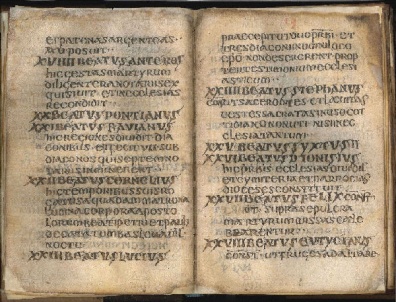 ETPATENASARGENTEAS
XXV POSUIT
XVIIII BEATUS ANTEROS
HICGESTASMARTYRUM
DILIGENTERANOTARIISEX
QUISIUIT ETINECLESIAS
RECONDIDIT
XX BEATUS PONTIANUS
XXI BEATUS FAVIANUS
HICREGIONESDIUIDITDIA
CONIBUS ETFECITVIISUB
DIACONOSQUISEPTEMNO
XXII BEATUS CORNELIUS
HICTEMPORIBUSSUISRO
GATUSAQUADAMMATRONA
LUCINACORPORAAPOSTO
LORUMBEATIPETRIETPAULI
DECATATUMBASLEUAUIT
NOCTU
XXIII BEATUS LUCIUS
PRAECEPITUTDUOPRBI ET
TRESDIACONIINOMNILOCO
EPO NONDESERERENT PROP
TERTESTIMONIUMECCLESI
ASTICUM
XXIIII BEATUS STEPHANUS
CONSTSACERDOTES ETLEUITAS
UESTESSACRATASINUSOCOT
TIDIANONONUTI NISIINEC
CLESIATANTUM
XXV BEATUS SYXTUS II
XXVI BEATUS DIONISIUS
HICPRBIS ECCLESIASDIUIDIT
ETCYMITERIAETPARROCIAS
DIOCESESCONSTITUIT
XXVII BEATUS FELIX CONST
UT SUPRASEPULCRA
MARTYRUMMISSASCELE
BRARENTUR
XXVIII BEATUS EUTYCIANUS
CONST UTFRUGESADALTARE